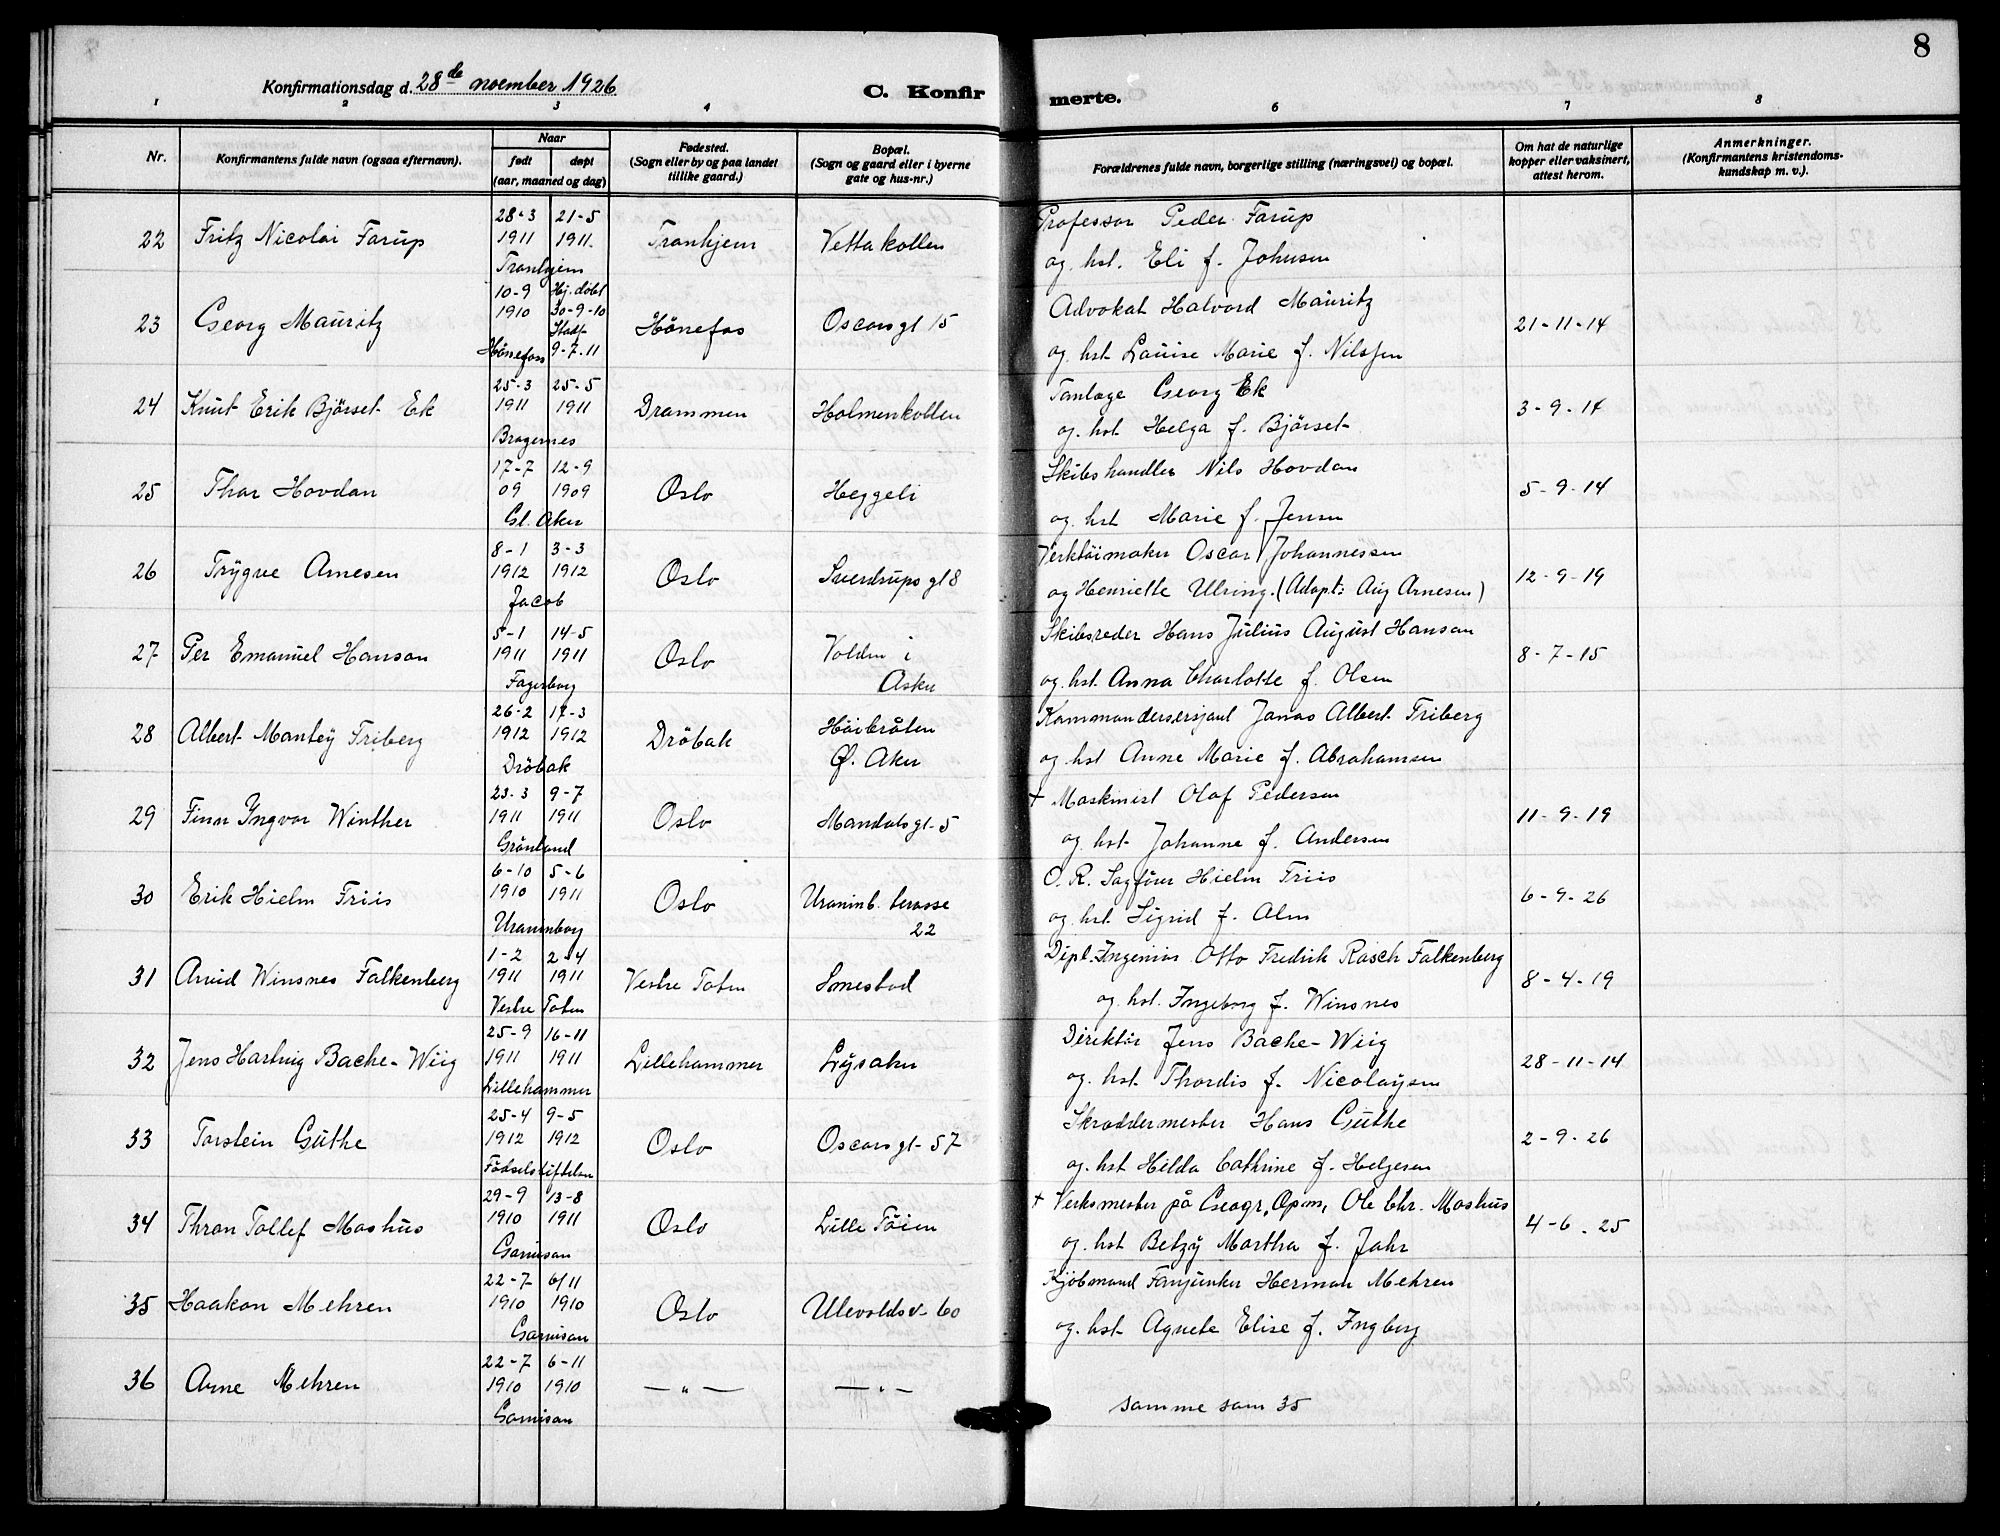 8
Konfirmationsdag d. 28de noember 1926
C. Konfirmerte.
1 2 3 4 5 6 7 8
Nr. Konfirmantens fulde navn (ogsaa efternavn). Naar født døpt (aar, maaned og dag) Fødested. (Sogn eller by og paa landet tillike gaard.) Bopæl. (Sogn og gaard eller i byerne gate og hus-nr.) Forældrenes fulde navn, borgerlige stilling (næringsvei) og bopæl. Om hat de naturlige kopper eller vaksinert, attest herom. Anmerkninger. (Konfirmantens kristendoms- kundskap m. v.).
22 Fritz Nicolai Farup 28-3 1911 21-5 1911 Tronhjem Tronhjem Vettakollen Professor Peder Farup
og hst. Eli f. Johnsen
23 Georg Mauritz 10-9 1910 Hj. døbt 30-9-10 Stadf. 9-7-11 Hønefoss Hönefos Oscarsgt 15 Advokat Halvord Mauritz 21-11-14
og hst Louise Marie f. Nilssen
24 Knut Erik Björset Ek 25-3 1911 25-5 1911 Bragernes Drammen Holmenkollen Tanlæge Georg Ek 3-9-14
og hst Helga f. Björset
25 Thor Hovdan 17-7 09 12-9 1909 Gl. Aker Oslo Heggeli Skibshandler Nils Hovdan 5-9-14
og hst Marie f. Jensen
26 Trygve Arnesen 8-1 1912 3-3 1912 Jacob Oslo Sverdrups gt 8 Verktöimaker Oscar Johannessen 12-9-19
og Henriette Ulring. (Adopt: Aug Arnesen)
27 Per Emanuel Hanson 5-1 1911 14-5 1911 Fagerborg Oslo Volden i Asker Skibsreder Hans Julius August Hanson 8-7-15
og hst. Anna Charlotte f. Olsen
28 Albert Mantey Friberg 26-2 1912 17-3 1912 Dröbak Dröbak Höibråten Ø. Aker Kommandersersjant Jonas Albert Friberg
og hst Anne Marie f. Abrahamsen
29 Finn Yngvar Winther 23-3 1911 9-7 1911 Grönland Oslo Mandalsgt 5 + Maskinist Olaf Pedersen 11-9-19
og hst Johanne f. Andersen
30 Erik Hielm Friis 6-10 1910 5-6 1911 Uraninborg Oslo Uraninb. terasse 22 O. R. Sagförer Hielm Friis 6-9-26
og hst. Sigrid f. Alm
31 Arvid Winsnes Falkenberg 1-2 1911 2-4 1911 Vestre Toten Vestre Toten Smestad Dipl. Ingeniör Otto Fredrik Rasch Falkenberg 8-4-19
og hst. Ingeborg f. Winsnes
32 Jens Hartvig Bache-Wiig 25-9 1911 16-11 1911 Lillehammer Lillehammer Lysaker Direktör Jens Bache-Wiig 28-11-14
og hst Thordis f. Nicolaysen
33 Torstein Guthe 25-4 1912 9-5 1912 Fødselsstiftelsen Oslo Oscarsgt 57 Skreddermester Hans Guthe 2-9-26
og hst Hilda Cathrine f. Helgesen
34 Thron Tollef Moshus 29-9 1910 13-8 1911 Garnison Oslo Lille Töien + Verksmester på Geogr. Opm. Ole Chr. Moshus 4-6-25
og hst Betzy Martha f. Jahr
35 Haakon Mehren 22-7 1910 6/11 1910 Garnison Oslo Ulevoldsv 60 Kjöbmand Fanjunker Herman Mehren
og hst Agnete Elise f. Ingberg
36 Arne Mehren 22-7 1910 6-11 1910 Garnison — " — — " — samme som 35